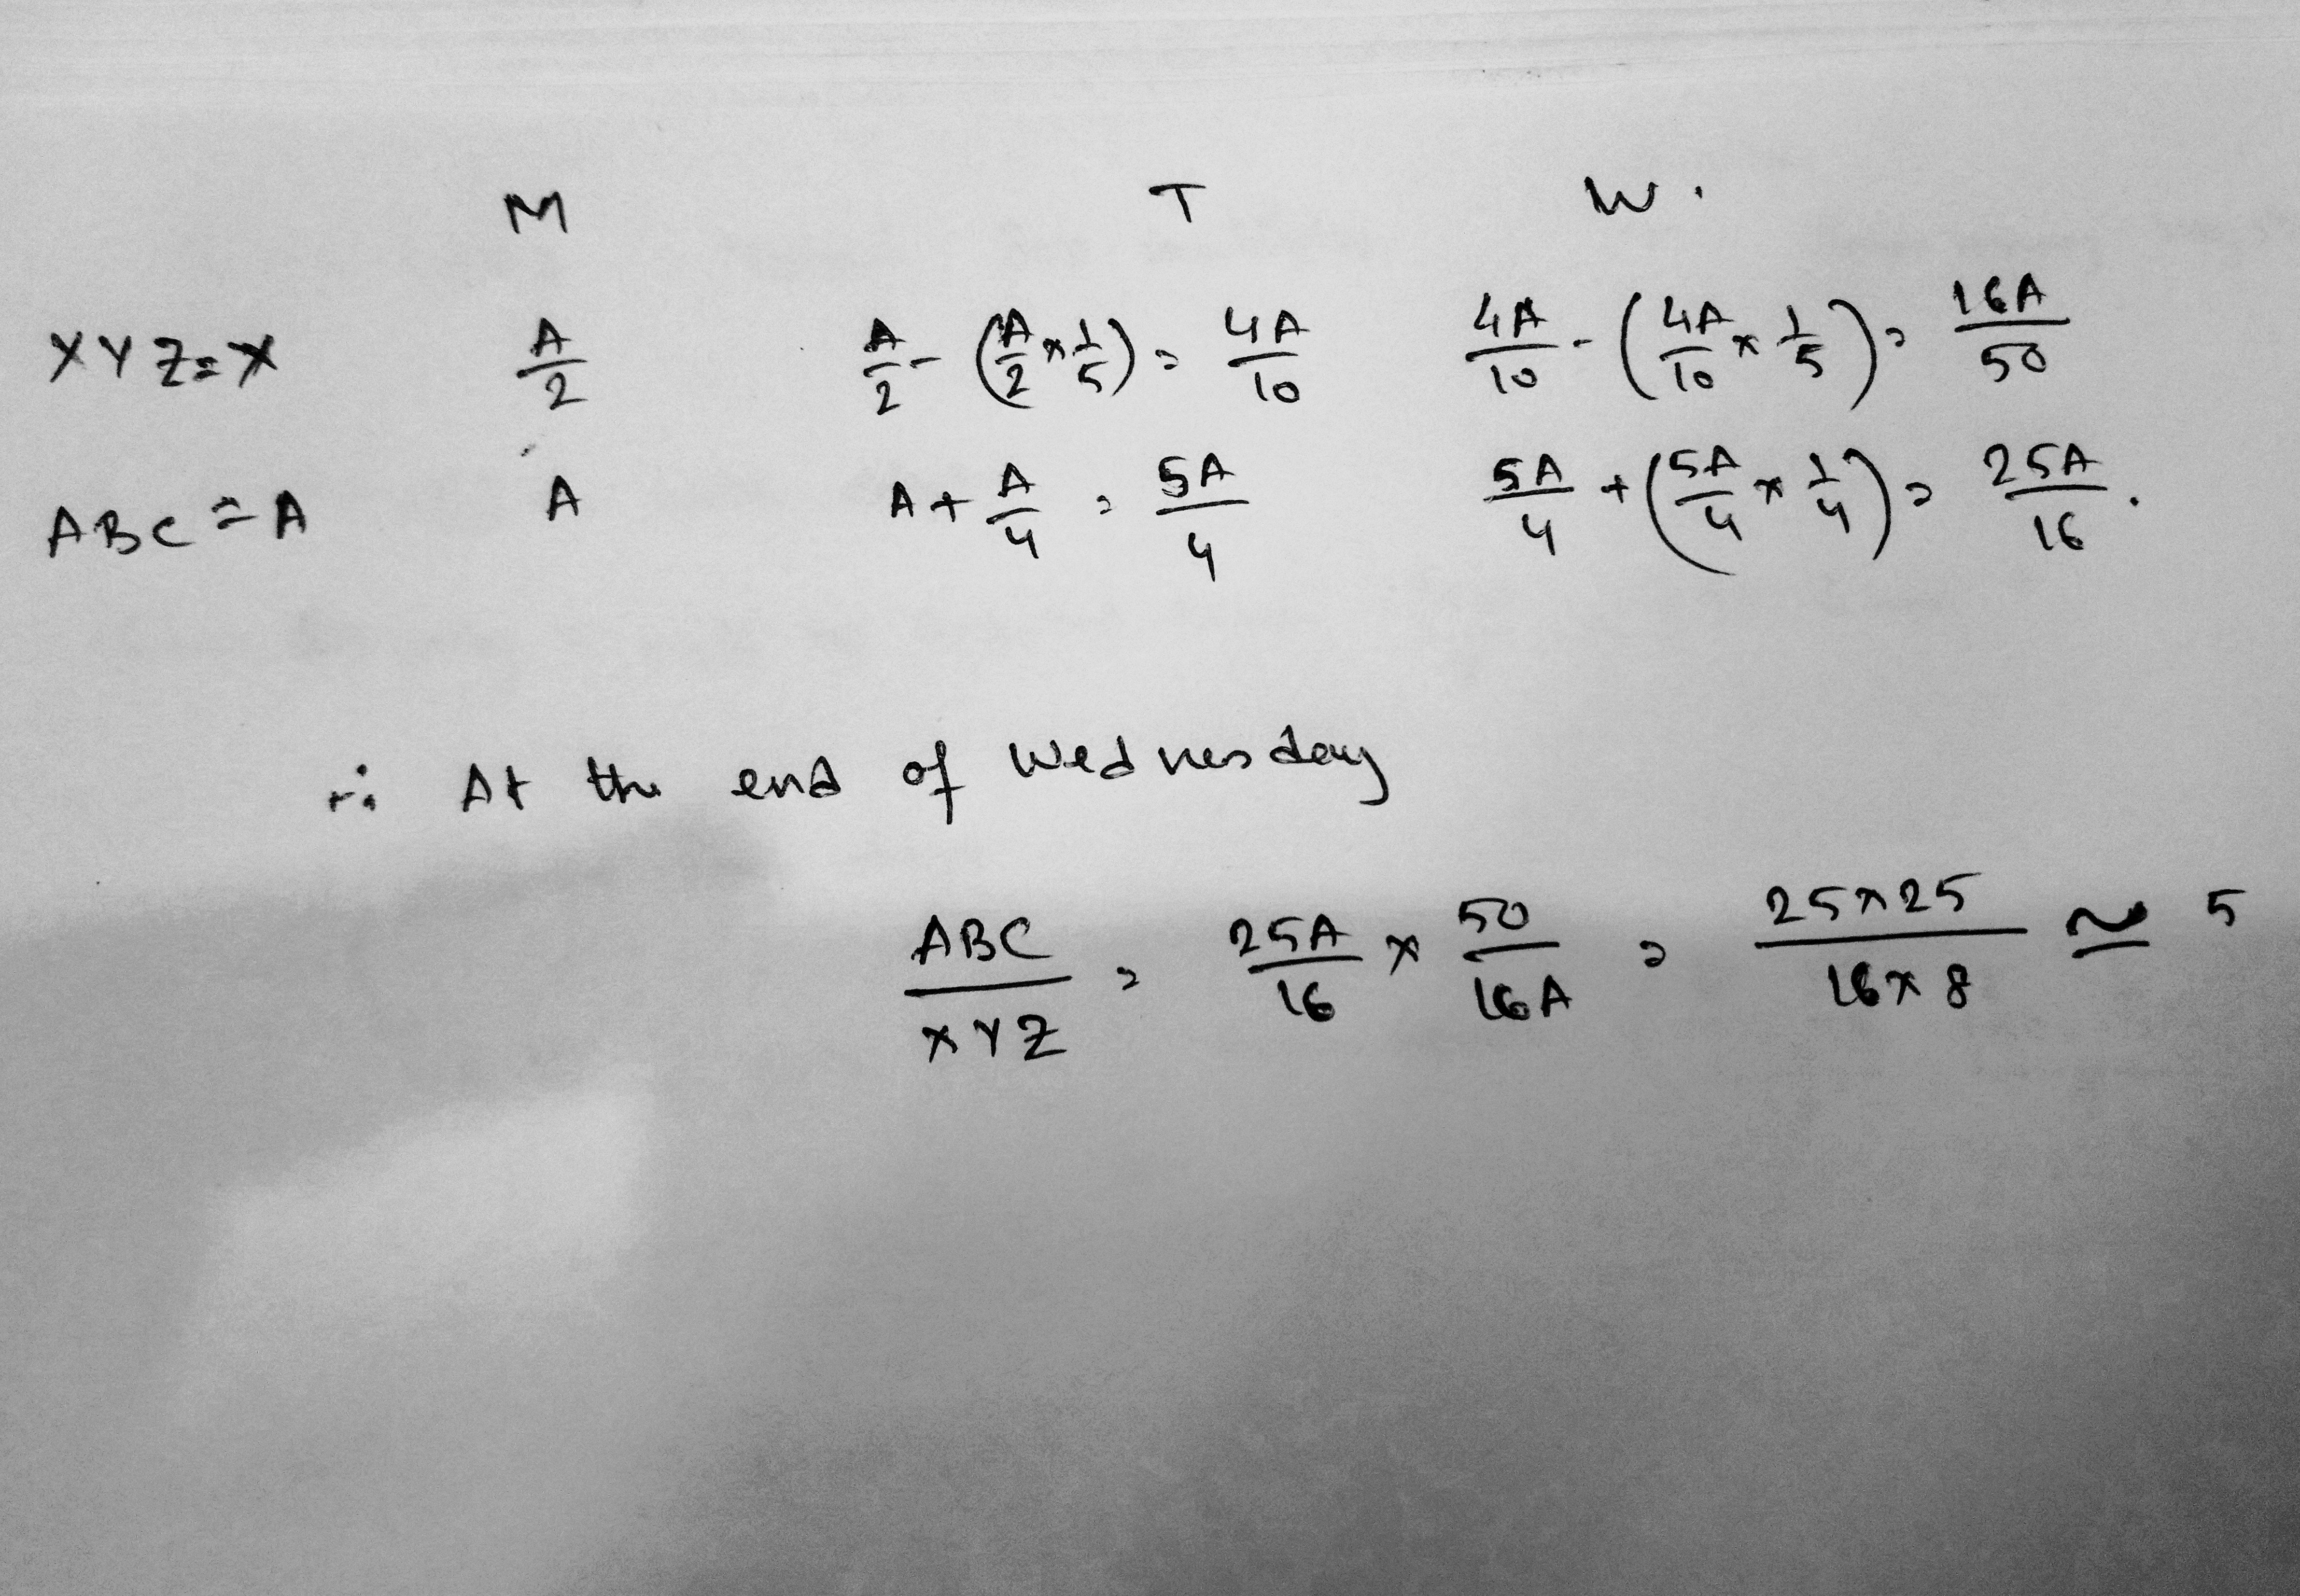 M T W.
XYZ=X A/2 A/2 - (A/2 × 1/5) = 4A/10 4A/10 - (4A/10 × 1/5) = 16A/50
ABC = A A A + A/4 = 5A/4 5A/4 + (5A/4 × 1/4) = 25A/16.
∴ At the end of Wednesday
ABC/XYZ = 25A/16 × 50/16A = 25×25/16×8 ≃ 5